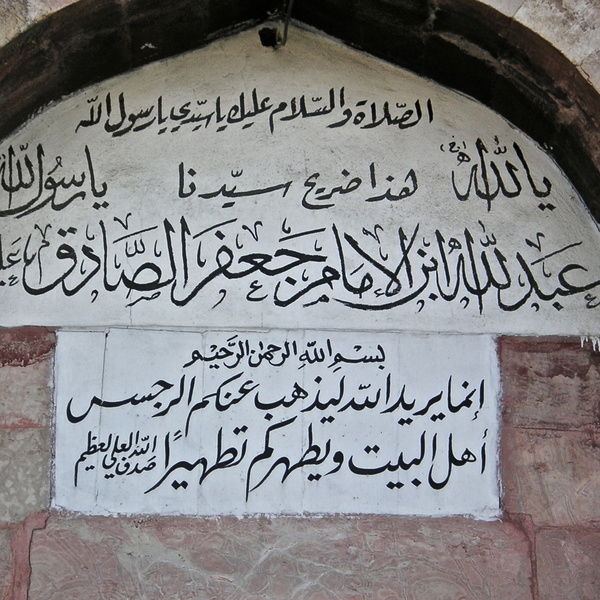 الصّلاة والسّلام عليك يا سيّدي يا رسول اللّه
يا اللّه هذا ضريح سيّدنا يا رسُول اللّه
عبَد للّه ابن الامام جَعفَر الصَّادق
بسْمِ اللّهِ الرحمٰن الرَّحيْم
إنما يريد اللّه ليذهب عنكم الرجس
أهل البيت ويطهركم تطهيرًا صدق اللّه العلي العظيم